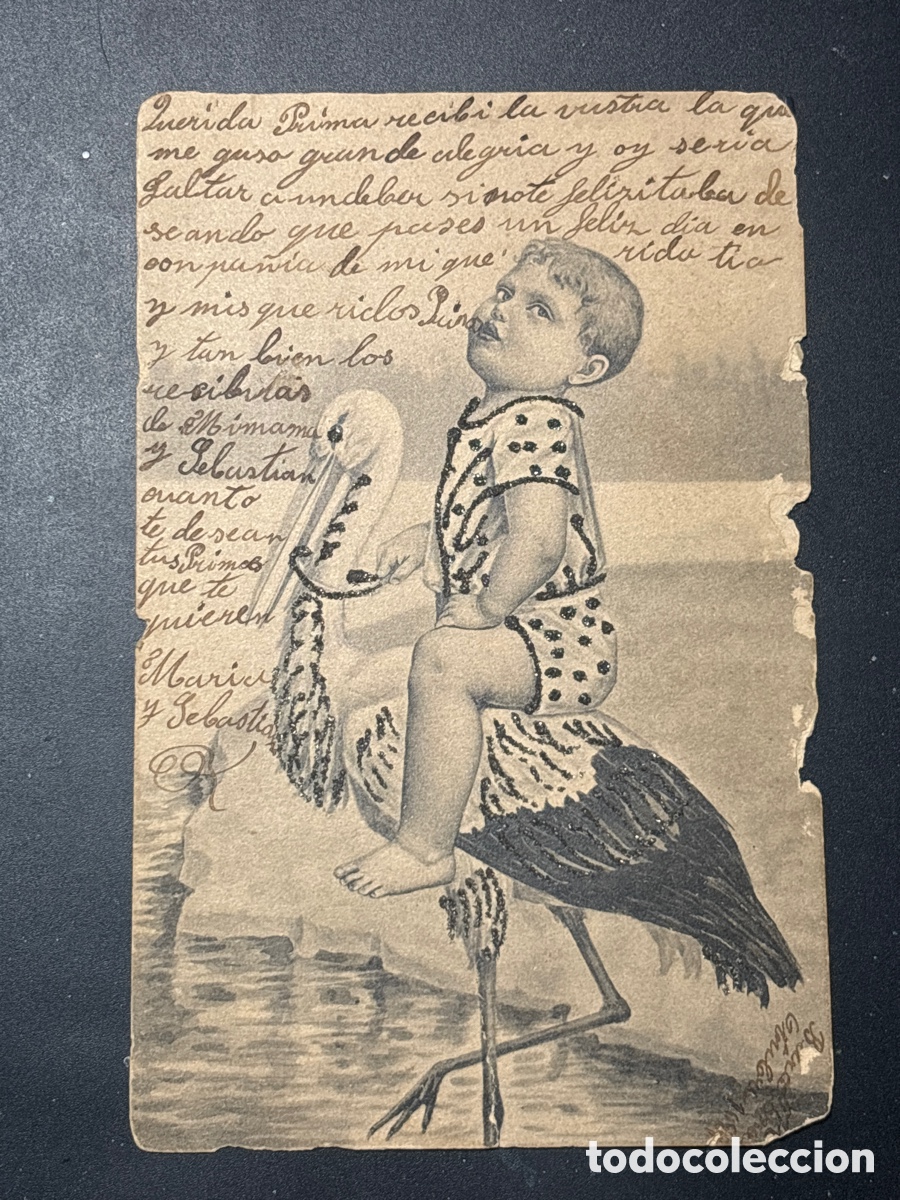 Querida Prima recibi la vustra la que
me guso grande alegria y oy seria
faltar a undeber sinote felizitaba de
seando que pases un feliz dia en
conpañia de mi que rida tia
y misque ridos Prim
y tan bien los
recibiras
de Mimama
y Sebastian
cuanto
te desean
tus Primos
que te
quieren
Maria
y Sebastia
todocoleccion